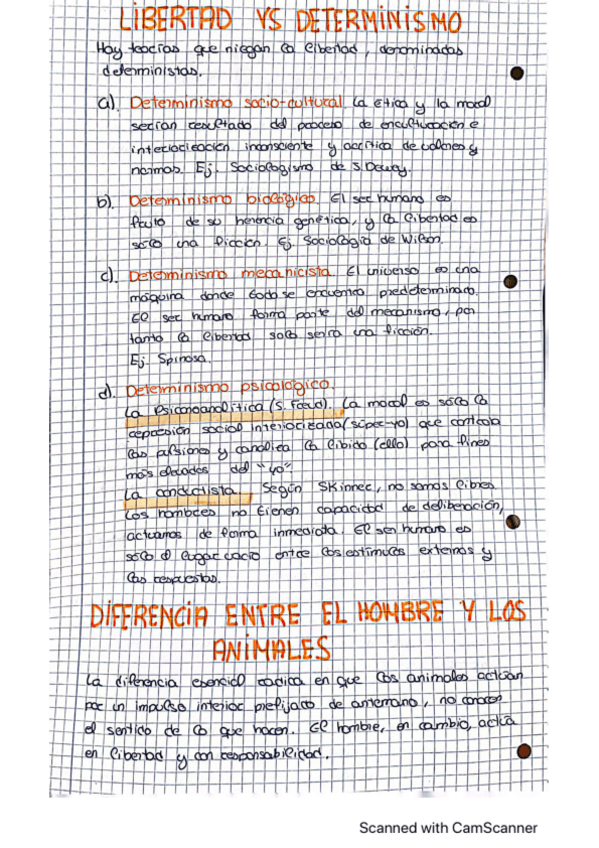 LIBERTAD VS DETERMINISMO
Hay teorías que niegan la libertad, denominadas
deterministas.
a). Determinismo socio-cultural. La ética y la moral
serían resultado del proceso de enculturación e
interiorización inconsciente y acrítica de valores y
normas. Ej. Sociologismo de S. Dewey.
b). Determinismo biológico. El ser humano es
fruto de su herencia genética, y la libertad es
sólo una ficción. Ej. Sociología de Wilson.
c). Determinismo mecanicista. El universo es una
máquina donde todo se encuentra predeterminado.
El ser humano forma parte del mecanismo, por
tanto la libertad solo sería una ficción.
Ej. Spinosa.
d). Determinismo psicológico.
La Psicoanalítica (S. Freud). La moral es sólo la
represión social interiorizada (súper-yo) que controla
las pulsiones y canaliza la libido (ello) para fines
más elevados del "yo"
La conductista. Según Skinner, no somos libres
Los hombres no tienen capacidad de deliberación,
actuamos de forma inmediata. El ser humano es
sólo el lugar vacio entre los estímulos externos y
las respuestas.
DIFERENCIA ENTRE EL HOMBRE Y LOS
ANIMALES
La diferencia esencial radica en que los animales actúan
por un impulso interior prefijado de antemano, no conocen
el sentido de lo que hacen. El hombre, en cambio, actúa
en libertad y con responsabilidad.
Scanned with CamScanner